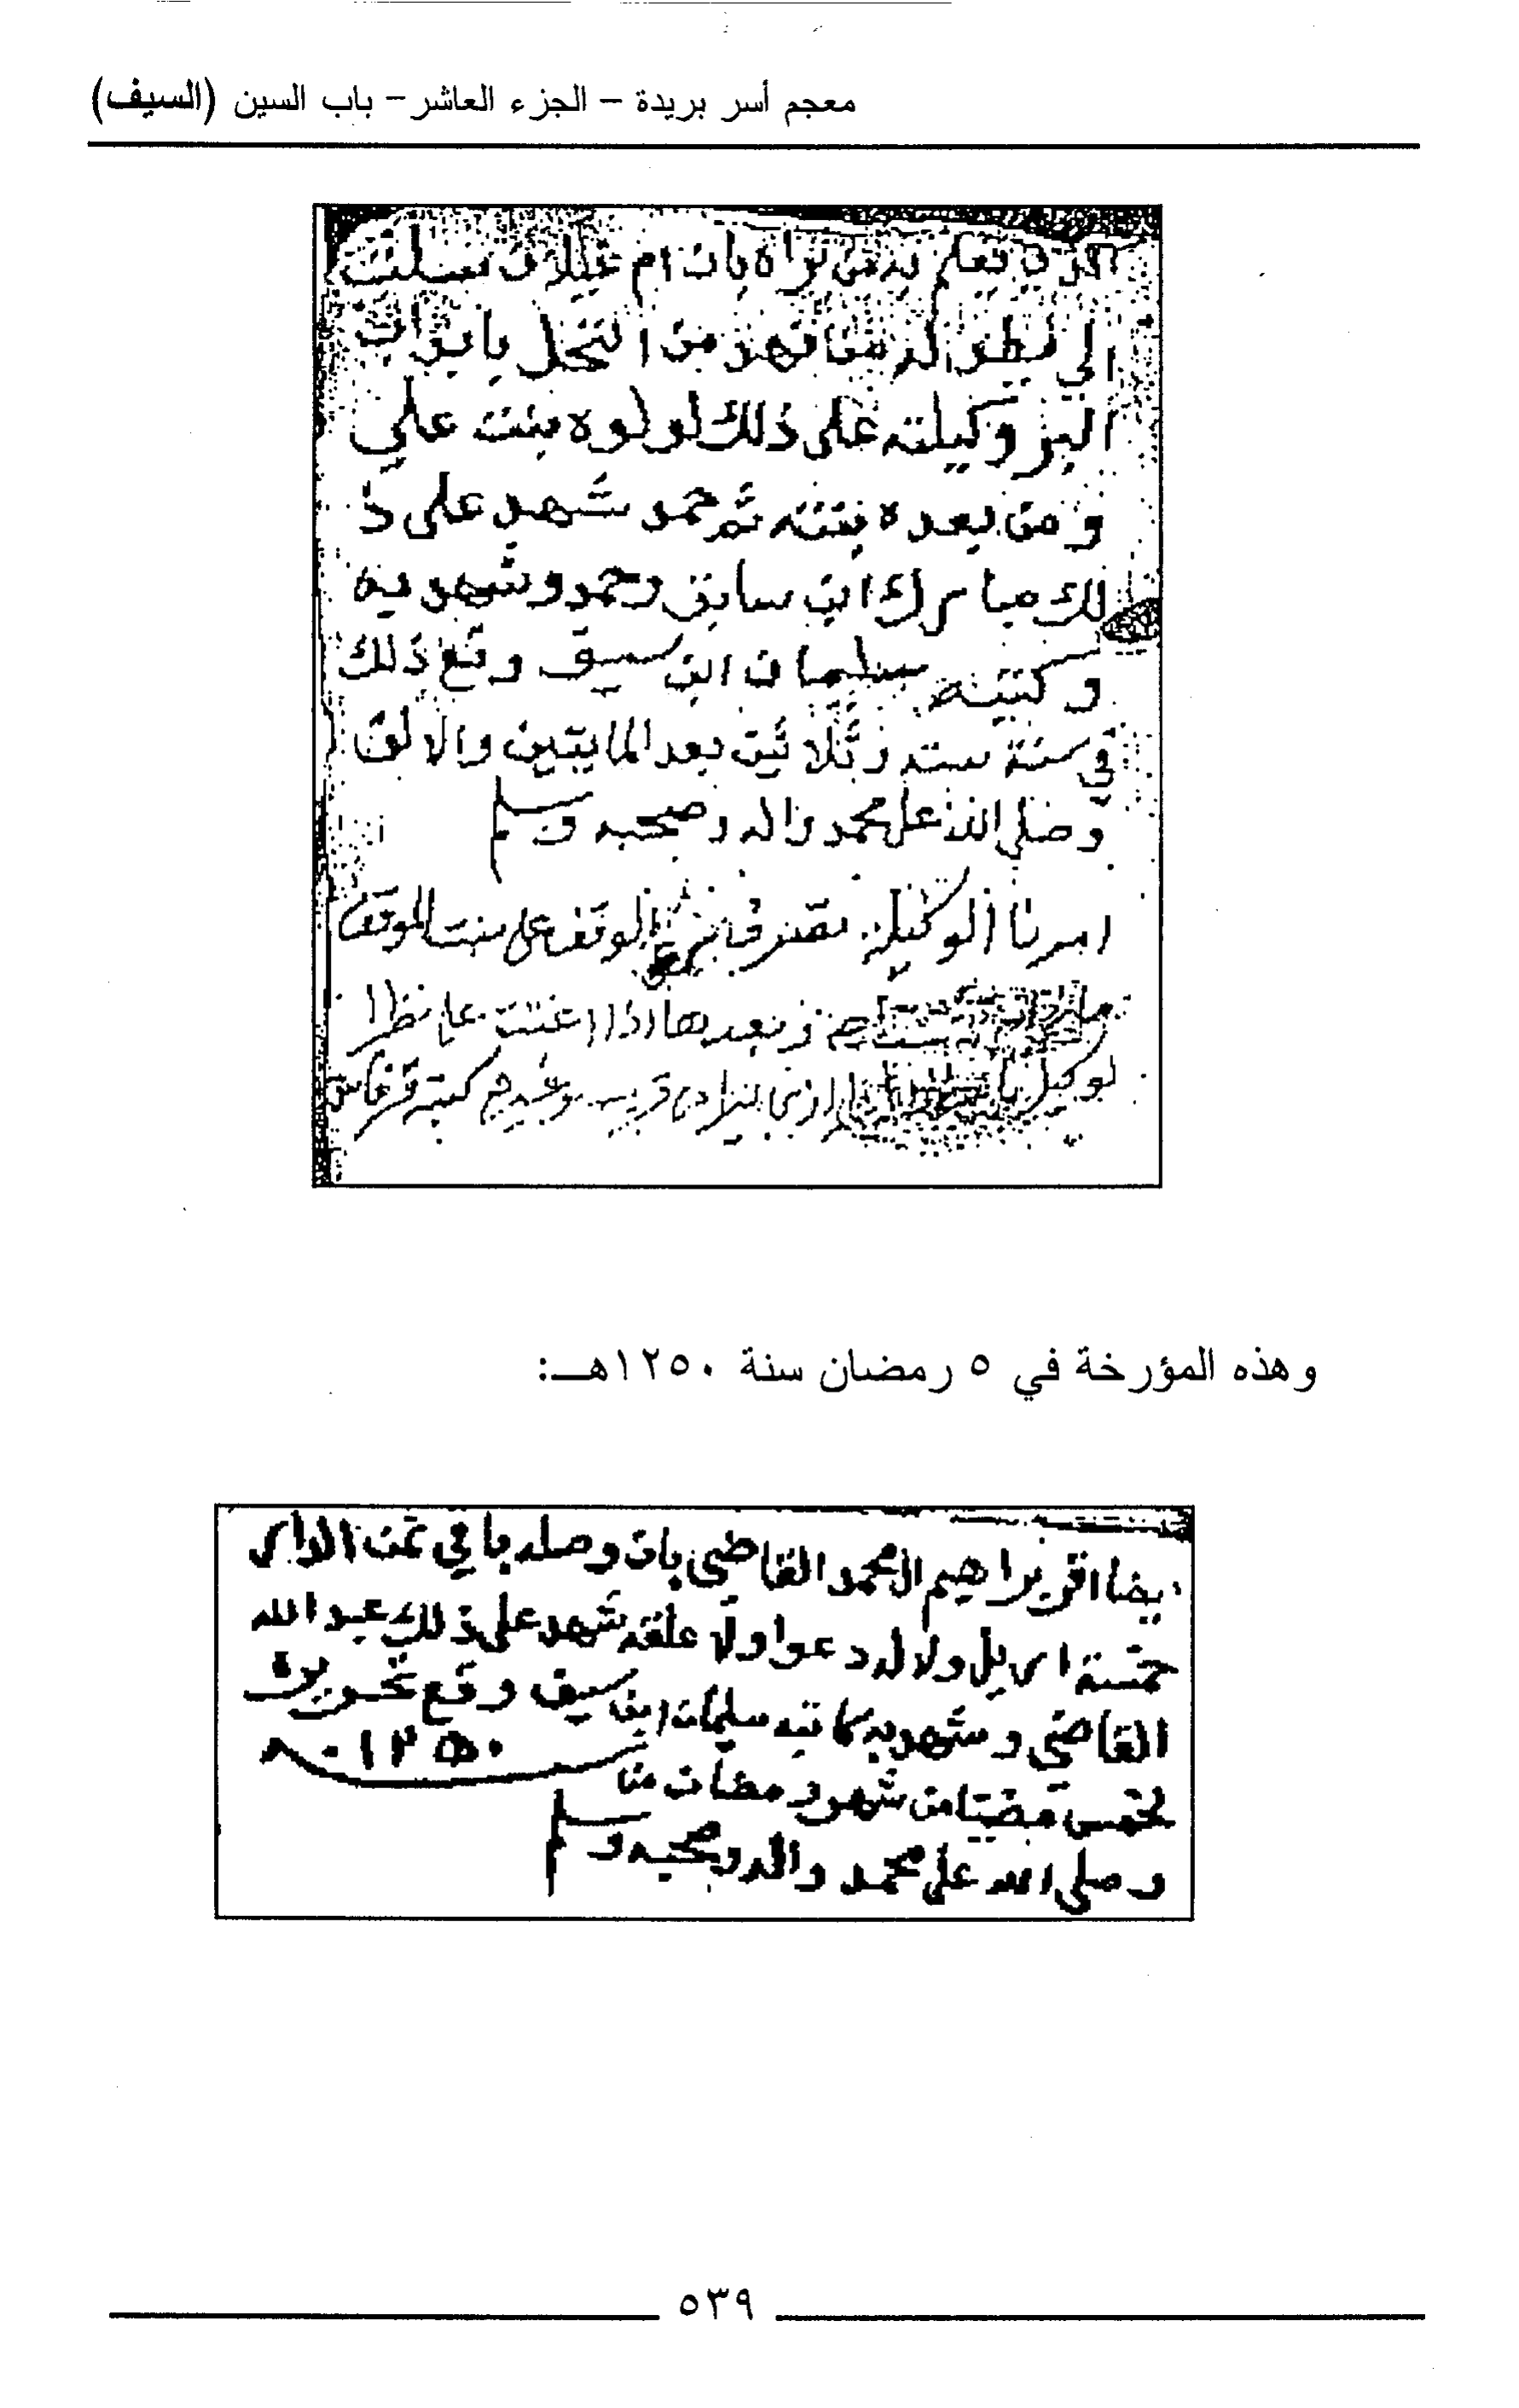 معجم أسر بريدة – الجزء العاشر– باب السين (السيف)
يعلم به من يراه بان ام
الى له من النخل
البر وكيلته على ذلك لولوه بنت علي
ومن بعده بنته ثم حمد شهد على ذ
لك مبارك ابن سابق وحمد وشهد به
وكتبه سليمان ابن سيف وقع ذلك
في سنة سته وثلاثين بعد المايتين والالف
وصلى الله على محمد واله وصحبه وسلم
امرنا الوكيله الوقف على بنت الموقف
وبعدها اذا
كتبه قرناس
وهذه المؤرخة في ٥ رمضان سنة ١٢٥٠هـ:
ايضا اقر براهيم ال محمد القاضي بان وصله باقي ثمن الدار
خمسة اريل ولا له دعوا ولا علقه شهد على ذلك عبد الله
القاضي وشهد به كاتبه سليمان ابن سيف وقع تحريره
لخمس مضتا من شهر رمضان من ١٢٥٠
وصلى الله على محمد واله وصحبه وسلم
٥٣٩